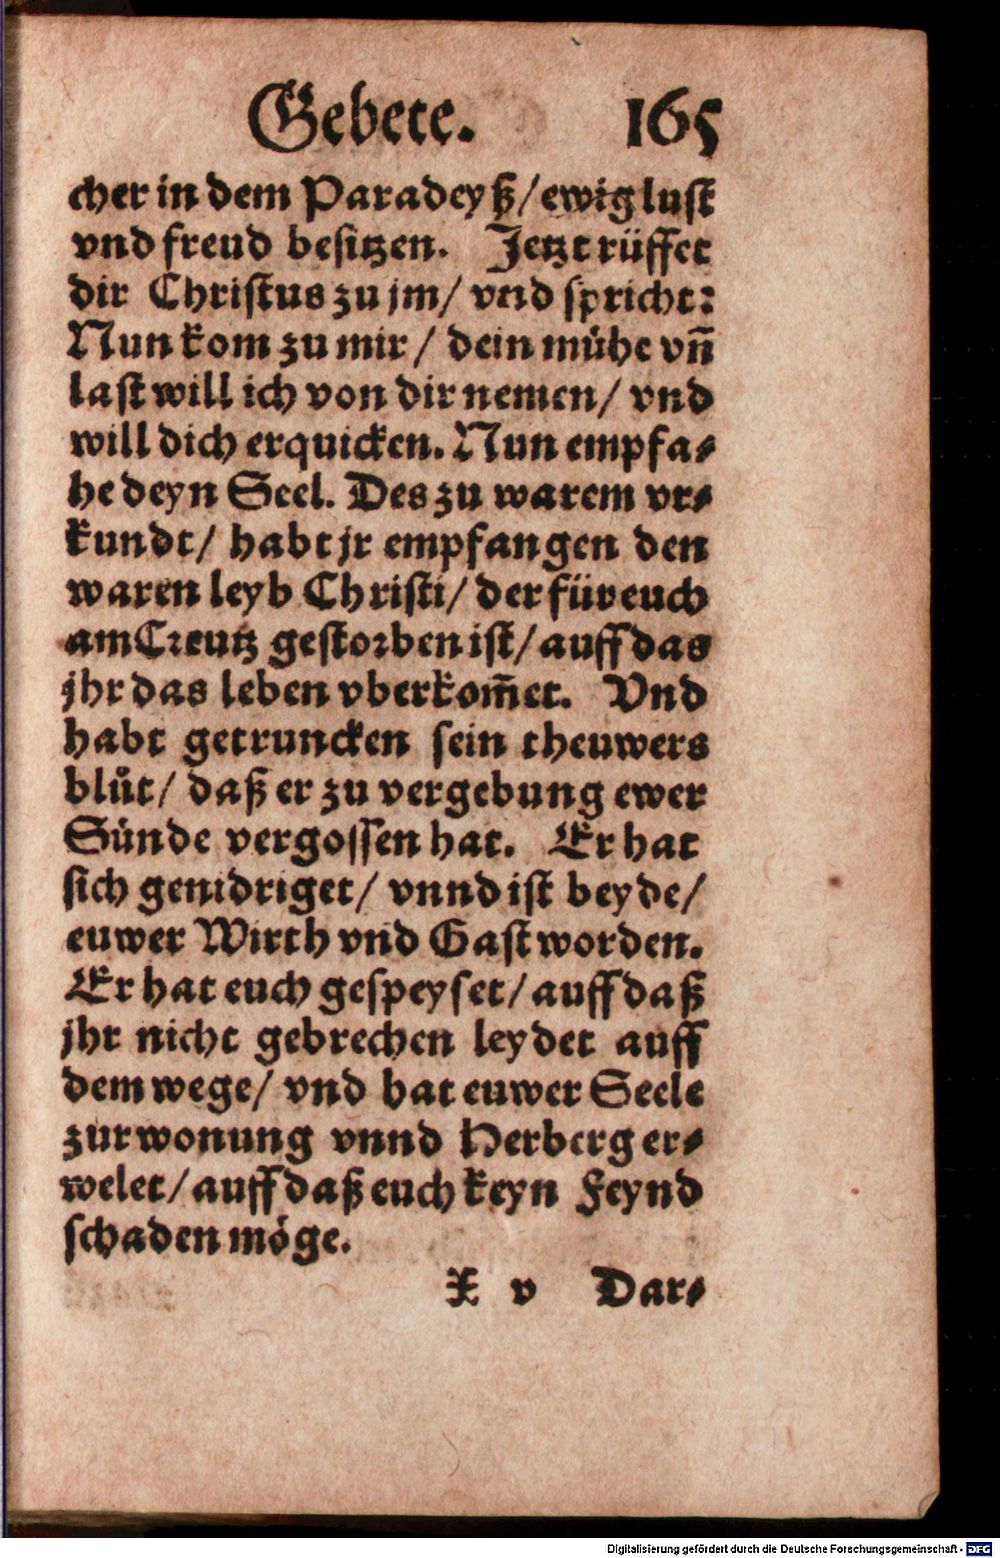 Gebete. 165
cher in dem Paradeyß/ ewig lust
vnd freud besitzen. Jetzt rüffet
dir Christus zu jm/ vnd spricht:
Nun kom zu mir/ dein mühe vn̄
last will ich von dir nemen/ vnd
will dich erquicken. Nun empfa-
he deyn Seel. Des zu warem vr-
kundt/ habt jr empfangen den
waren leyb Christi/ der für euch
am Creutz gestorben ist/ auff das
jhr das leben vberkom̄et. Vnd
habt getruncken sein theuwers
blůt/ daß er zu vergebung ewer
Sünde vergossen hat. Er hat
sich genidriget/ vnnd ist beyde/
euwer Wirth vnd Gast worden.
Er hat euch gespeyset/ auff daß
jhr nicht gebrechen leydet auff
dem wege/ vnd hat euwer Seele
zur wonung vnnd Herberg er-
welet/ auff daß euch keyn Feynd
schaden möge.
X v Dar-
Digitalisierung gefördert durch die Deutsche Forschungsgemeinschaft - DFG